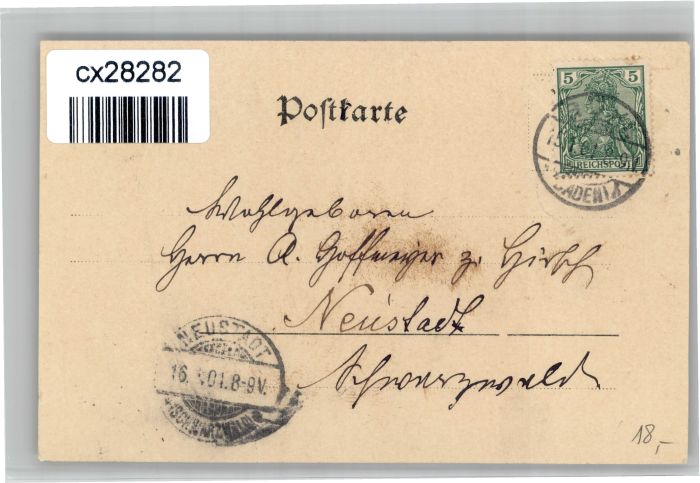 cx28282
Postkarte
5 5
REICHSPOST
(BADEN)
Wohlgeboren
Herrn A. Hoffmeyer z. Hirsch
Neustadt
Schwarzwald
NEUSTADT
16. .01.8-9V.
(SCHWARZWALD)
18,-